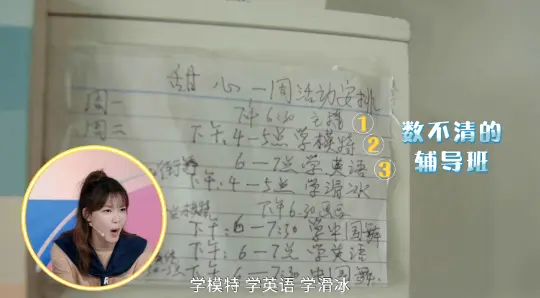 甜心一周活动安排
周一 下午6:30 主持
周二 下午:4-5点学模特 ①
6-7点学英语 ②
下午:4-5点 学滑冰 ③
下午6:30画画
下午:6-7:30 学中国舞
下午:6-7点学英语
下午:6-7:30 中国舞
数不清的
辅导班
学模特 学英语 学滑冰